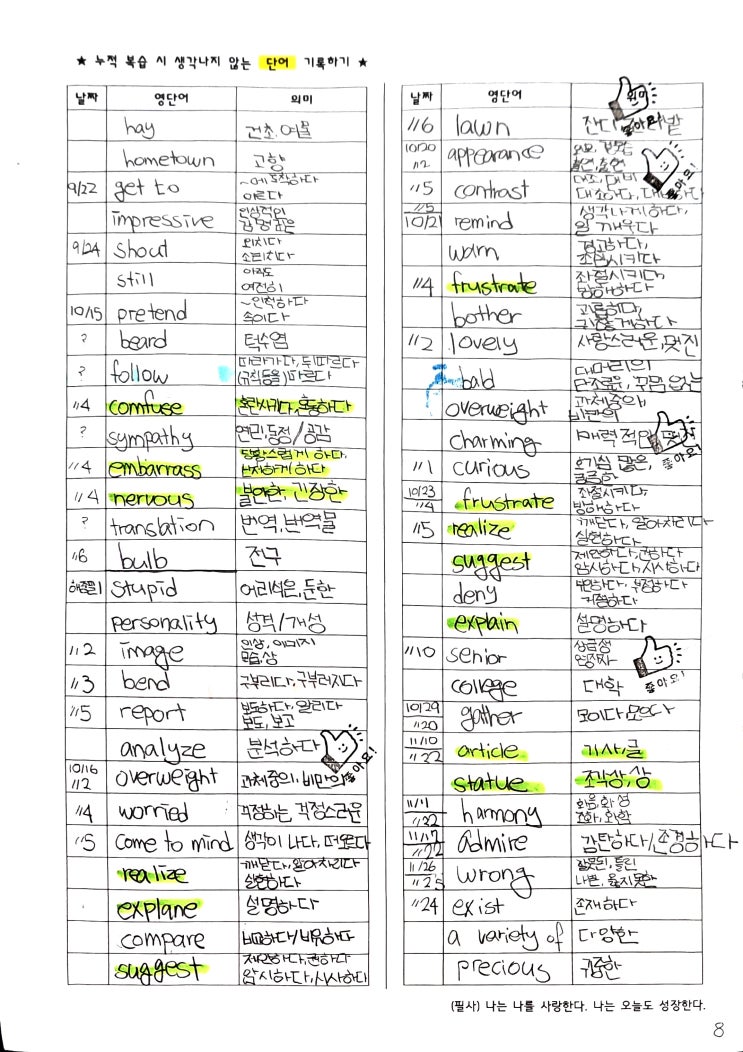 ★ 누적 복습 시 생각나지 않는 단어 기록하기 ★
날짜 영단어 의미
hay 건초, 여물
hometown 고향
9/22 get to ~에 도착하다
이르다
impressive 인상적인
감명 깊은
9/24 shout 외치다
소리치다
still 아직도
여전히
10/15 pretend ~인척하다
속이다
? beard 턱수염
? follow 따라가다, 뒤따르다
(규칙등을)따르다
11/4 comfuse 혼란시키다, 혼동하다
? sympathy 연민, 동정/공감
11/4 embarrass 당황스럽게 하다
난처하게 하다
11/4 nervous 불안한, 긴장한
? translation 번역, 번역물
11/6 bulb 전구
stupid 어리석은, 둔한
personality 성격/개성
11/2 image 인상, 이미지
모습, 상
11/3 bend 구부리다, 구부러지다
11/5 report 보도하다, 알리다
보도, 보고
analyze 분석하다
좋아요!
10/16
11/2 overweight 과체중의, 비만의
11/4 worried 걱정하는, 걱정스러운
11/5 come to mind 생각이 나다, 떠오르다
realize 깨닫다, 알아차리다
실현하다
explane 설명하다
compare 비교하다/비유하다
suggest 제안하다, 권하다
암시하다, 시사하다
날짜 영단어 의미
11/6 lawn 잔디
좋아요!
10/20
11/2 appearance
좋아요!
11/5 contrast 대조, 대비
대조하다, 대비하다
11/5
10/21 remind 생각나게 하다,
일깨우다
warn 경고하다,
조심시키다
11/4 frustrate 좌절시키다,
방해하다
bother 괴롭히다,
귀찮게하다
11/2 lovely 사랑스러운, 멋진
bald 대머리의
단조로운, 꾸밈 없는
overweight 과체중의,
비만의
charming 매력적인, 멋진
좋아요!
11/1 curious 호기심 많은,
궁금한
10/23
11/4 frustrate 좌절시키다,
방해하다
11/5 realize 깨닫다, 알아차리다
실현하다
suggest 제안하다, 권하다
암시하다, 시사하다
deny 부인하다, 부정하다
거절하다
explain 설명하다
11/10 senior 상급생
연장자
college 대학
좋아요!
10/29
11/20 gather 모이다, 모으다
11/10
11/22 article 기사, 글
statue 조각상, 상
harmony 화음, 화성
조화, 화합
11/17
11/22 admire 감탄하다/존경하다
11/26
wrong 잘못된, 틀린
나쁜, 옳지못한
11/24 exist 존재하다
a variety of 다양한
precious 귀중한
(필사) 나는 나를 사랑한다. 나는 오늘도 성장한다.
8